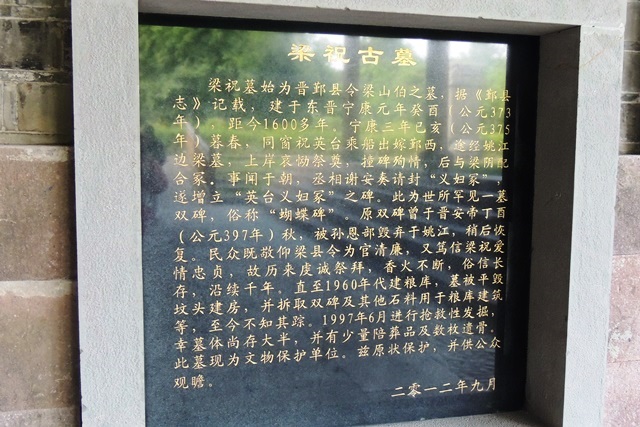 梁祝古墓
梁祝墓始为晋鄞县令梁山伯之墓，据《鄞县
志》记载，建于东晋宁康元年癸酉（公元373
年），距今1600多年。宁康三年己亥（公元375
年）暮春，同窗祝英台乘船出嫁鄞西，途经姚江
边梁墓，上岸哀恸祭奠，撞碑殉情，后与梁阴配
合冢。事闻于朝，丞相谢安奏请封“义妇冢”，
遂增立“英台义妇冢”之碑。此为世所罕见一墓
双碑，俗称“蝴蝶碑”。原双碑曾于晋安帝丁酉
（公元397年）秋，被孙恩部毁弃于姚江，稍后恢
复。民众既敬仰梁县令为官清廉，又笃信梁祝爱
情忠贞，故历来虔诚祭拜，香火不断，俗信长
存，沿续千年。直至1960年代建粮库，墓被平毁
坟头建房，并拆取双碑及其他石料用于粮库建筑
等，至今不知其踪。1997年6月进行抢救性发掘，
幸墓体尚存大半，并有少量陪葬品及数枚遗骨。
此墓现为文物保护单位。兹原状保护，并供公众
观瞻。
二零一二年九月